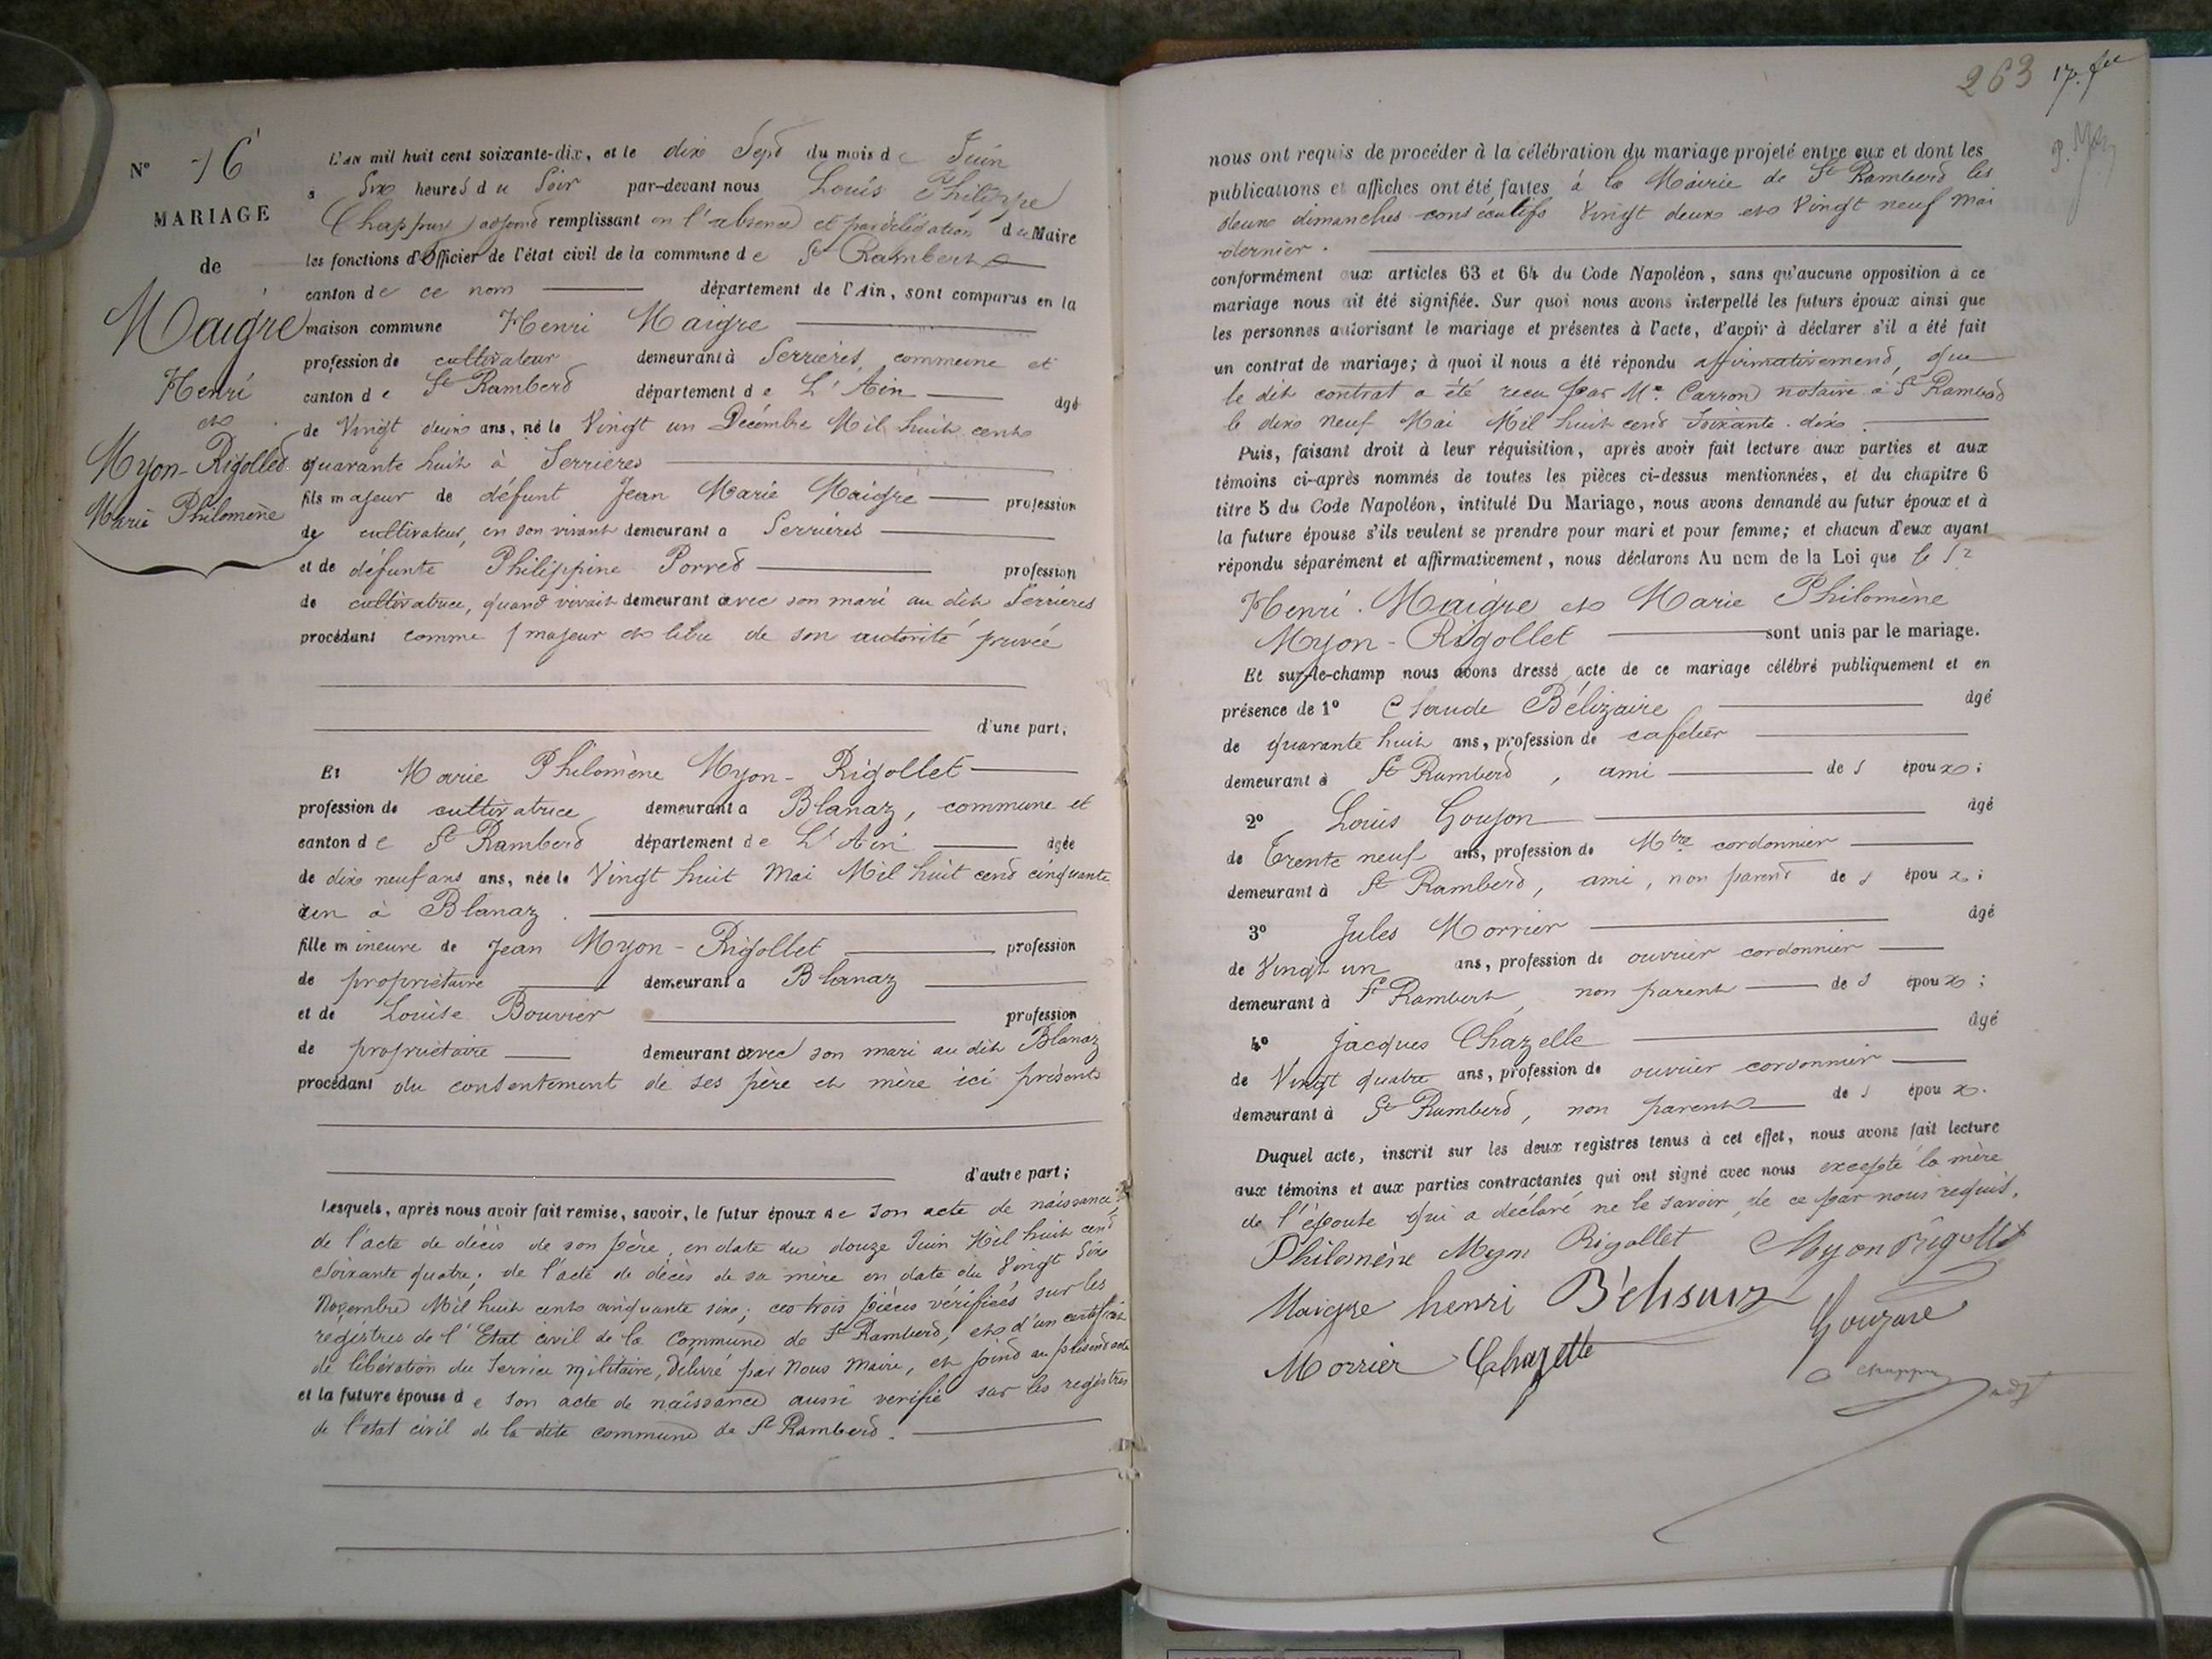 N° 16
MARIAGE
de
Maigre
Henri
et
Myon-Rigollet
Marie Philomène
L'an mil huit cent soixante-dix, et le dix Sept du mois de Juin
a Six heures du Soir par-devant nous Louis Philippe
Chappuy adjoint remplissant en l'absence et par délégation du Maire
les fonctions d'Officier de l'état civil de la commune de St Rambert
canton de ce nom département de l'Ain, sont comparus en la
maison commune Henri Maigre
profession de cultivateur demeurant à Serrières, commune et
canton de St Rambert département de L'Ain âgé
de Vingt deux ans, né le Vingt un Décembre Mil huit cent
quarante huit à Serrières
fils majeur de défunt Jean Marie Maigre profession
de cultivateur, en son vivant demeurant a Serrières
et de défunte Philippine Porret profession
de cultivatrice, quand vivait demeurant avec son mari au dit Serrières
procédant comme majeur et libre de son autorité privée
d'une part;
Et Marie Philomène Myon-Rigollet
profession de cultivatrice demeurant a Blanaz, commune et
canton de St Rambert département de L'Ain âgée
de dix neuf ans ans, née le Vingt huit Mai Mil huit cent cinquante
un à Blanaz.
fille mineure de Jean Myon-Rigollet profession
de propriétaire demeurant a Blanaz
et de Louise Bouvier profession
de propriétaire demeurant avec son mari au dit Blanaz
procédant du consentement de ses père et mère ici présents
d'autre part;
Lesquels, après nous avoir fait remise, savoir, le futur époux de son acte de naissance
de l'acte de décès de son père, en date du douze Juin Mil huit cent
Soixante quatre; de l'acte de décès de sa mère en date du Vingt Six
Novembre Mil huit cent cinquante six; ces trois pièces vérifiées sur les
registres de l'Etat civil de la Commune de St Rambert, et d'un certificat
de libération du Service militaire, délivré par Nous Maire, et joint au présent acte
et la future épouse de son acte de naissance aussi verifié sur les registres
de l'état civil de la dite commune de St Rambert.
263
nous ont requis de procéder à la célébration du mariage projeté entre eux et dont les
publications et affiches ont été faites à la Mairie de St Rambert les
deux dimanches consécutifs Vingt deux et Vingt neuf Mai
dernier.
conformément aux articles 63 et 64 du Code Napoléon, sans qu'aucune opposition à ce
mariage nous ait été signifiée. Sur quoi nous avons interpellé les futurs époux ainsi que
les personnes autorisant le mariage et présentes à l'acte, d'avoir à déclarer s'il a été fait
un contrat de mariage; à quoi il nous a été répondu affirmativement, que
le dit contrat a été recu par Me Carron notaire à St Rambert
le dix neuf Mai Mil huit cent Soixante dix.
Puis, faisant droit à leur réquisition, après avoir fait lecture aux parties et aux
témoins ci-après nommés de toutes les pièces ci-dessus mentionnées, et du chapitre 6
titre 5 du Code Napoléon, intitulé Du Mariage, nous avons demandé au futur époux et à
la future épouse s'ils veulent se prendre pour mari et pour femme; et chacun d'eux ayant
répondu séparément et affirmativement, nous déclarons Au nom de la Loi que le Sr
Henri Maigre et Marie Philomène
Myon-Rigollet sont unis par le mariage.
Et sur-le-champ nous avons dressé acte de ce mariage célébré publiquement et en
présence de 1° Claude Bélizaire âgé
de quarante huit ans, profession de cafetier
demeurant à St Rambert, ami des époux;
2° Louis Goujon âgé
de Trente neuf ans, profession de Mtre cordonnier
demeurant à St Rambert, ami, non parent des époux;
3° Jules Morrier âgé
de Vingt un ans, profession de ouvrier cordonnier
demeurant à St Rambert, non parent des époux;
4° Jacques Chazelle âgé
de Vingt quatre ans, profession de ouvrier cordonnier
demeurant à St Rambert, non parent des époux.
Duquel acte, inscrit sur les deux registres tenus à cet effet, nous avons fait lecture
aux témoins et aux parties contractantes qui ont signé avec nous excepté la mère
de l'épouse qui a déclaré ne le savoir, de ce par nous requis.
Philomène Myon Rigollet Myon Rigollet
Maigre henri
Morrier Chazelle